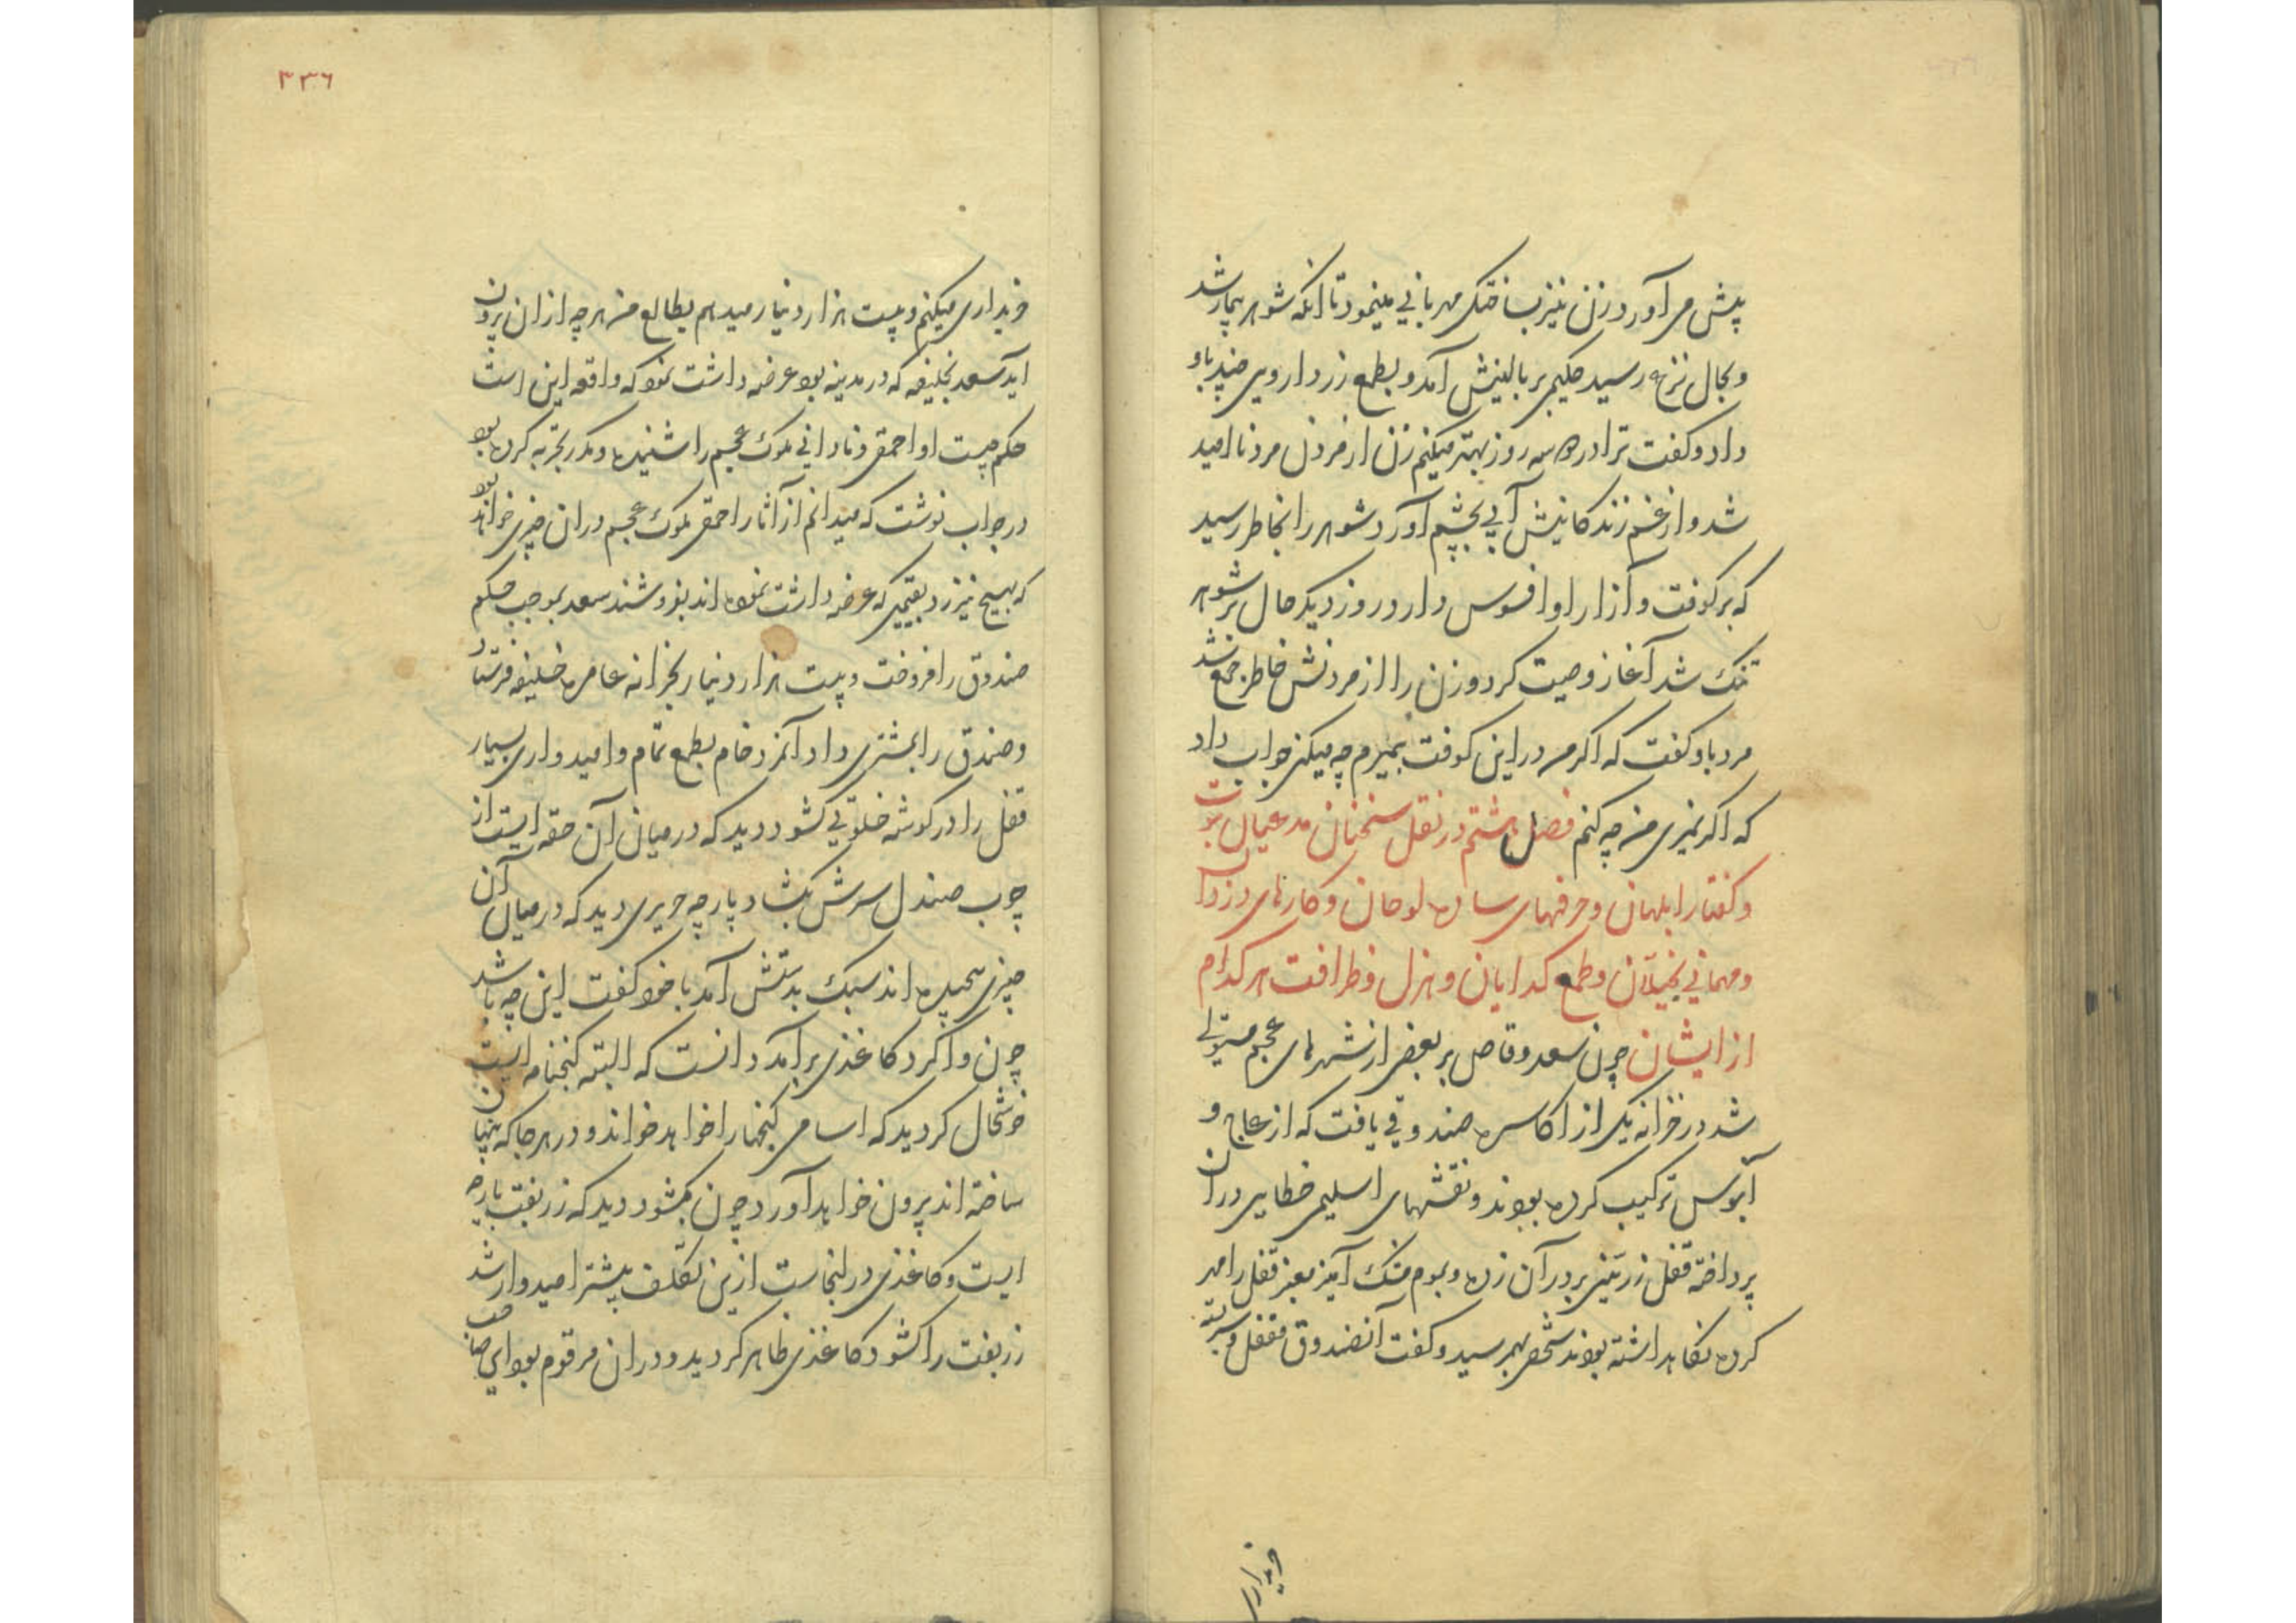 پیش می آورد زن نیز بساختگی مهربانی مینمود تا انکه شوهر بیمار شد
و بحال نزع رسید حکیمی بر بالینش آمد و بطمع زر داروی چند باو
داد و کفت ترا در سه روز بهتر میکنم زن از مردن مرد نا امید
شد و از غم زندکانیش آبی بچشم آورد شوهر را بخاطر رسید
که بر کوفت و آزار او افسوس دارد روز دیکر حال بر شوهر
تنک شد آغاز وصیت کرد و زن را از مردنش خاطر جمع شد
مرد باو کفت که اکر من در این کوفت بمیرم چه میکنی جواب داد
که اکر نمیری من چه کنم فصل هشتم در نقل سخنان مدعیان نبوت
و کفتار ابلهان و حرفهای ساده لوحان و کارهای دزدان
و مهمانی بخیلان و طمع کدایان و هزل و ظرافت هر کدام
از ایشان چون سعد وقاص بر بعضی از شهرهای عجم مستولی
شد در خزانه یکی از اکاسره صندوقی یافت که از عاج و
آبنوس ترکیب کرده بودند و نقشهای اسلیمی خطایی در ان
پرداخته قفل زرینی بر در آن زده و بموم مشک آمیز معنبر قفل را مهر
کرده نکاهداشته بودند شخصی بهم رسید و کفت آنصندوق مقفل سربسته
خریداری
۳۳٦
خریداری میکنم و بیست هزار دینار میدهم بطالع من هرچه از ان بیرون
اید سعد بخلیفه که در مدینه بود عرضه داشت نمود که واقعه این است
حکم چیست او احمقی و نادانی ملوک عجم را شنیده و مکرر تجربه کرده بود
در جواب نوشت که میدانم از آثار احمقی ملوک عجم در ان چیزی خواهد بود
که بهیچ نیرزد بقیمتی که عرضه داشت نموده اند بفروشند سعد بموجب حکم
صندوق را فروخت و بیست هزار دینار بخزانه عامره خلیفه فرستاد
و صندق را بمشتری داد آنمرد خام بطمع تمام و امیدواری بسیار
قفل را در کوشه خلوتی کشود دید که در میان آن حقه ایست از
چوب صندل سرش بکشاد پارچه حریری دید که در میان آن
چیزی پیچیده اند سبک بدستش آمد با خود کفت این چه باشد
چون وا کرد کاغذی برآمد دانست که البته کنجنامه ایست
خوشحال کردید که اسامی کنجها را خواهد خواند و در هر جا که پنهان
ساخته اند بیرون خواهد آورد چون بکشود دید که زربفت پارچه
ایست و کاغذی در انجاست ازین تکلف بیشتر امیدوار شد
زربفت را کشود کاغذی ظاهر کردید و در ان مرقوم بود ای صاحب